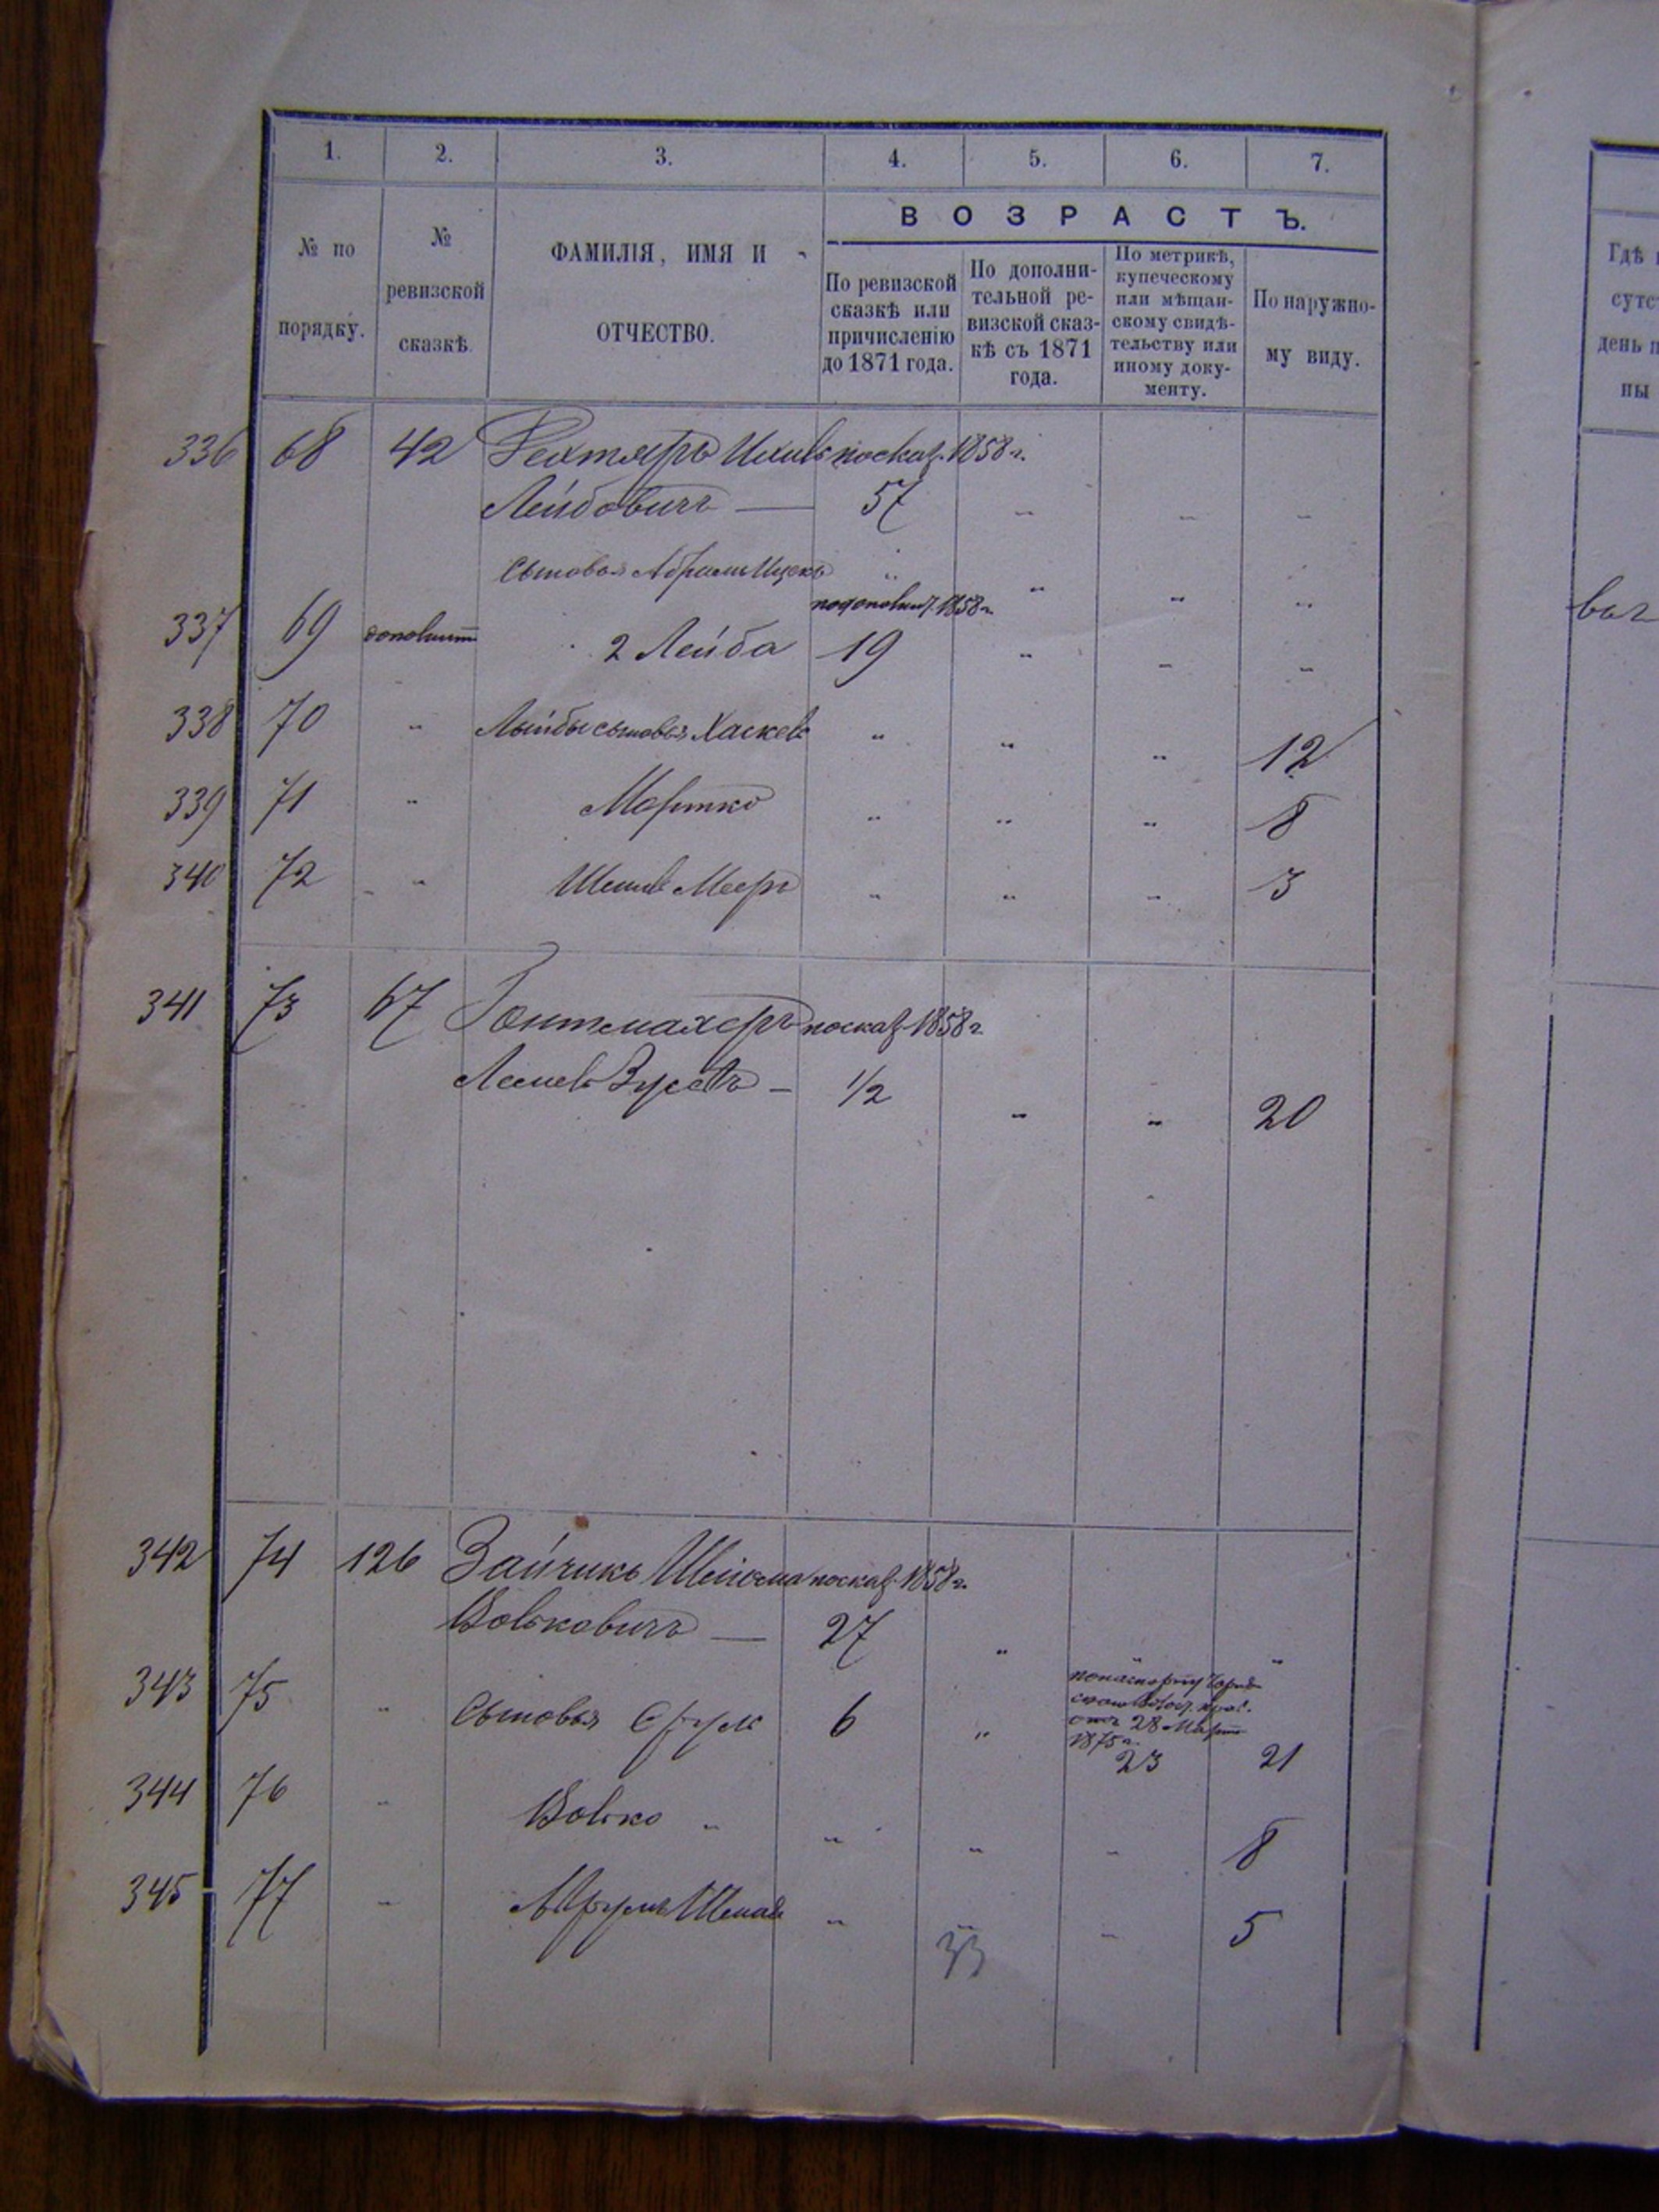 1. 2. 3. 4. 5. 6. 7.
№ по порядку.
№ ревизской сказкѣ.
ФАМИЛІЯ, ИМЯ И ОТЧЕСТВО.
ВОЗРАСТЪ.
По ревизской сказкѣ или причисленію до 1871 года.
По дополнительной ревизской сказкѣ съ 1871 года.
По метрикѣ, купеческому или мѣщанскому свидѣтельству или иному документу.
По наружному виду.
336 68 42 Рехтяръ по сказ. 1858 г.
Лейбовичъ — 57 " " "
Сыновья Абрамъ Ицекъ " " " "
1858 г.
337 69 2 Лейба 19 " " "
338 70 " сыновья Хаскель " " " 12
339 71 " Мортко " " " 8
340 72 " Мееръ " " " 3
341 73 67 Гонтмахеръ по сказ. 1858 г.
— 1/2 " " 20
342 74 126 Зайчикъ по сказ. 1858 г.
Вольковичъ — 27 " " "
по паспорту
343 75 " Сыновья Сруль 6 "
отъ 28 Марта
1875 г.
23 21
344 76 " Волько " " " " 8
345 77 " " " " 5
33
Гдѣ
день